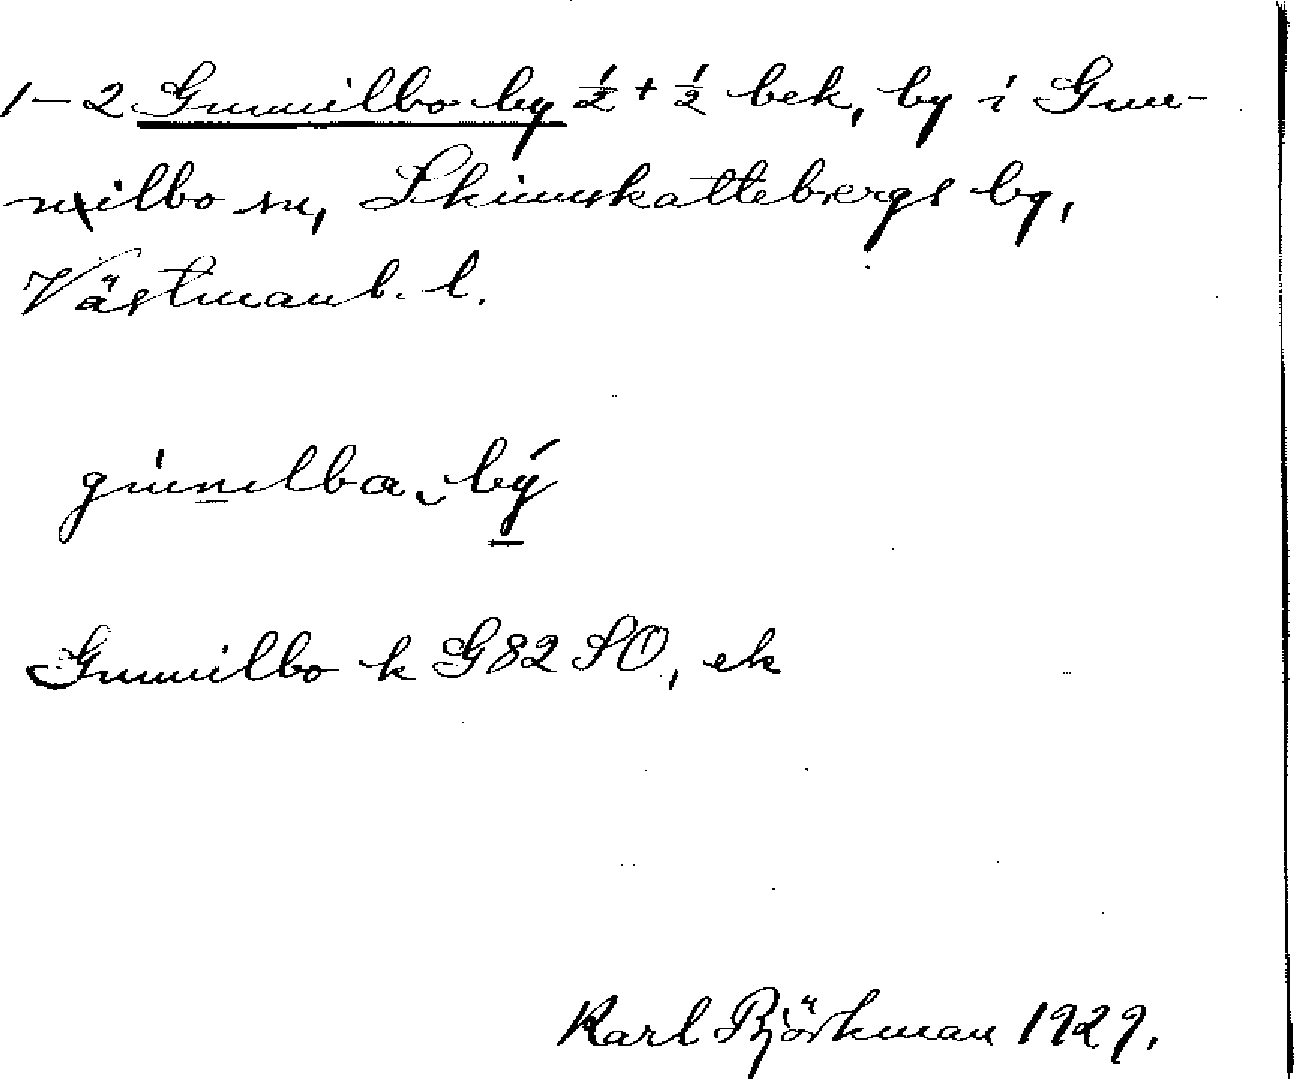 1–2 Gunnilbo by ½ + ½ bek, by i Gun-
nilbo sn, Skinnskattebergs by,
Västmanl. l.
Gunnilbo k G82 SO, ek
Karl Björkman 1929.